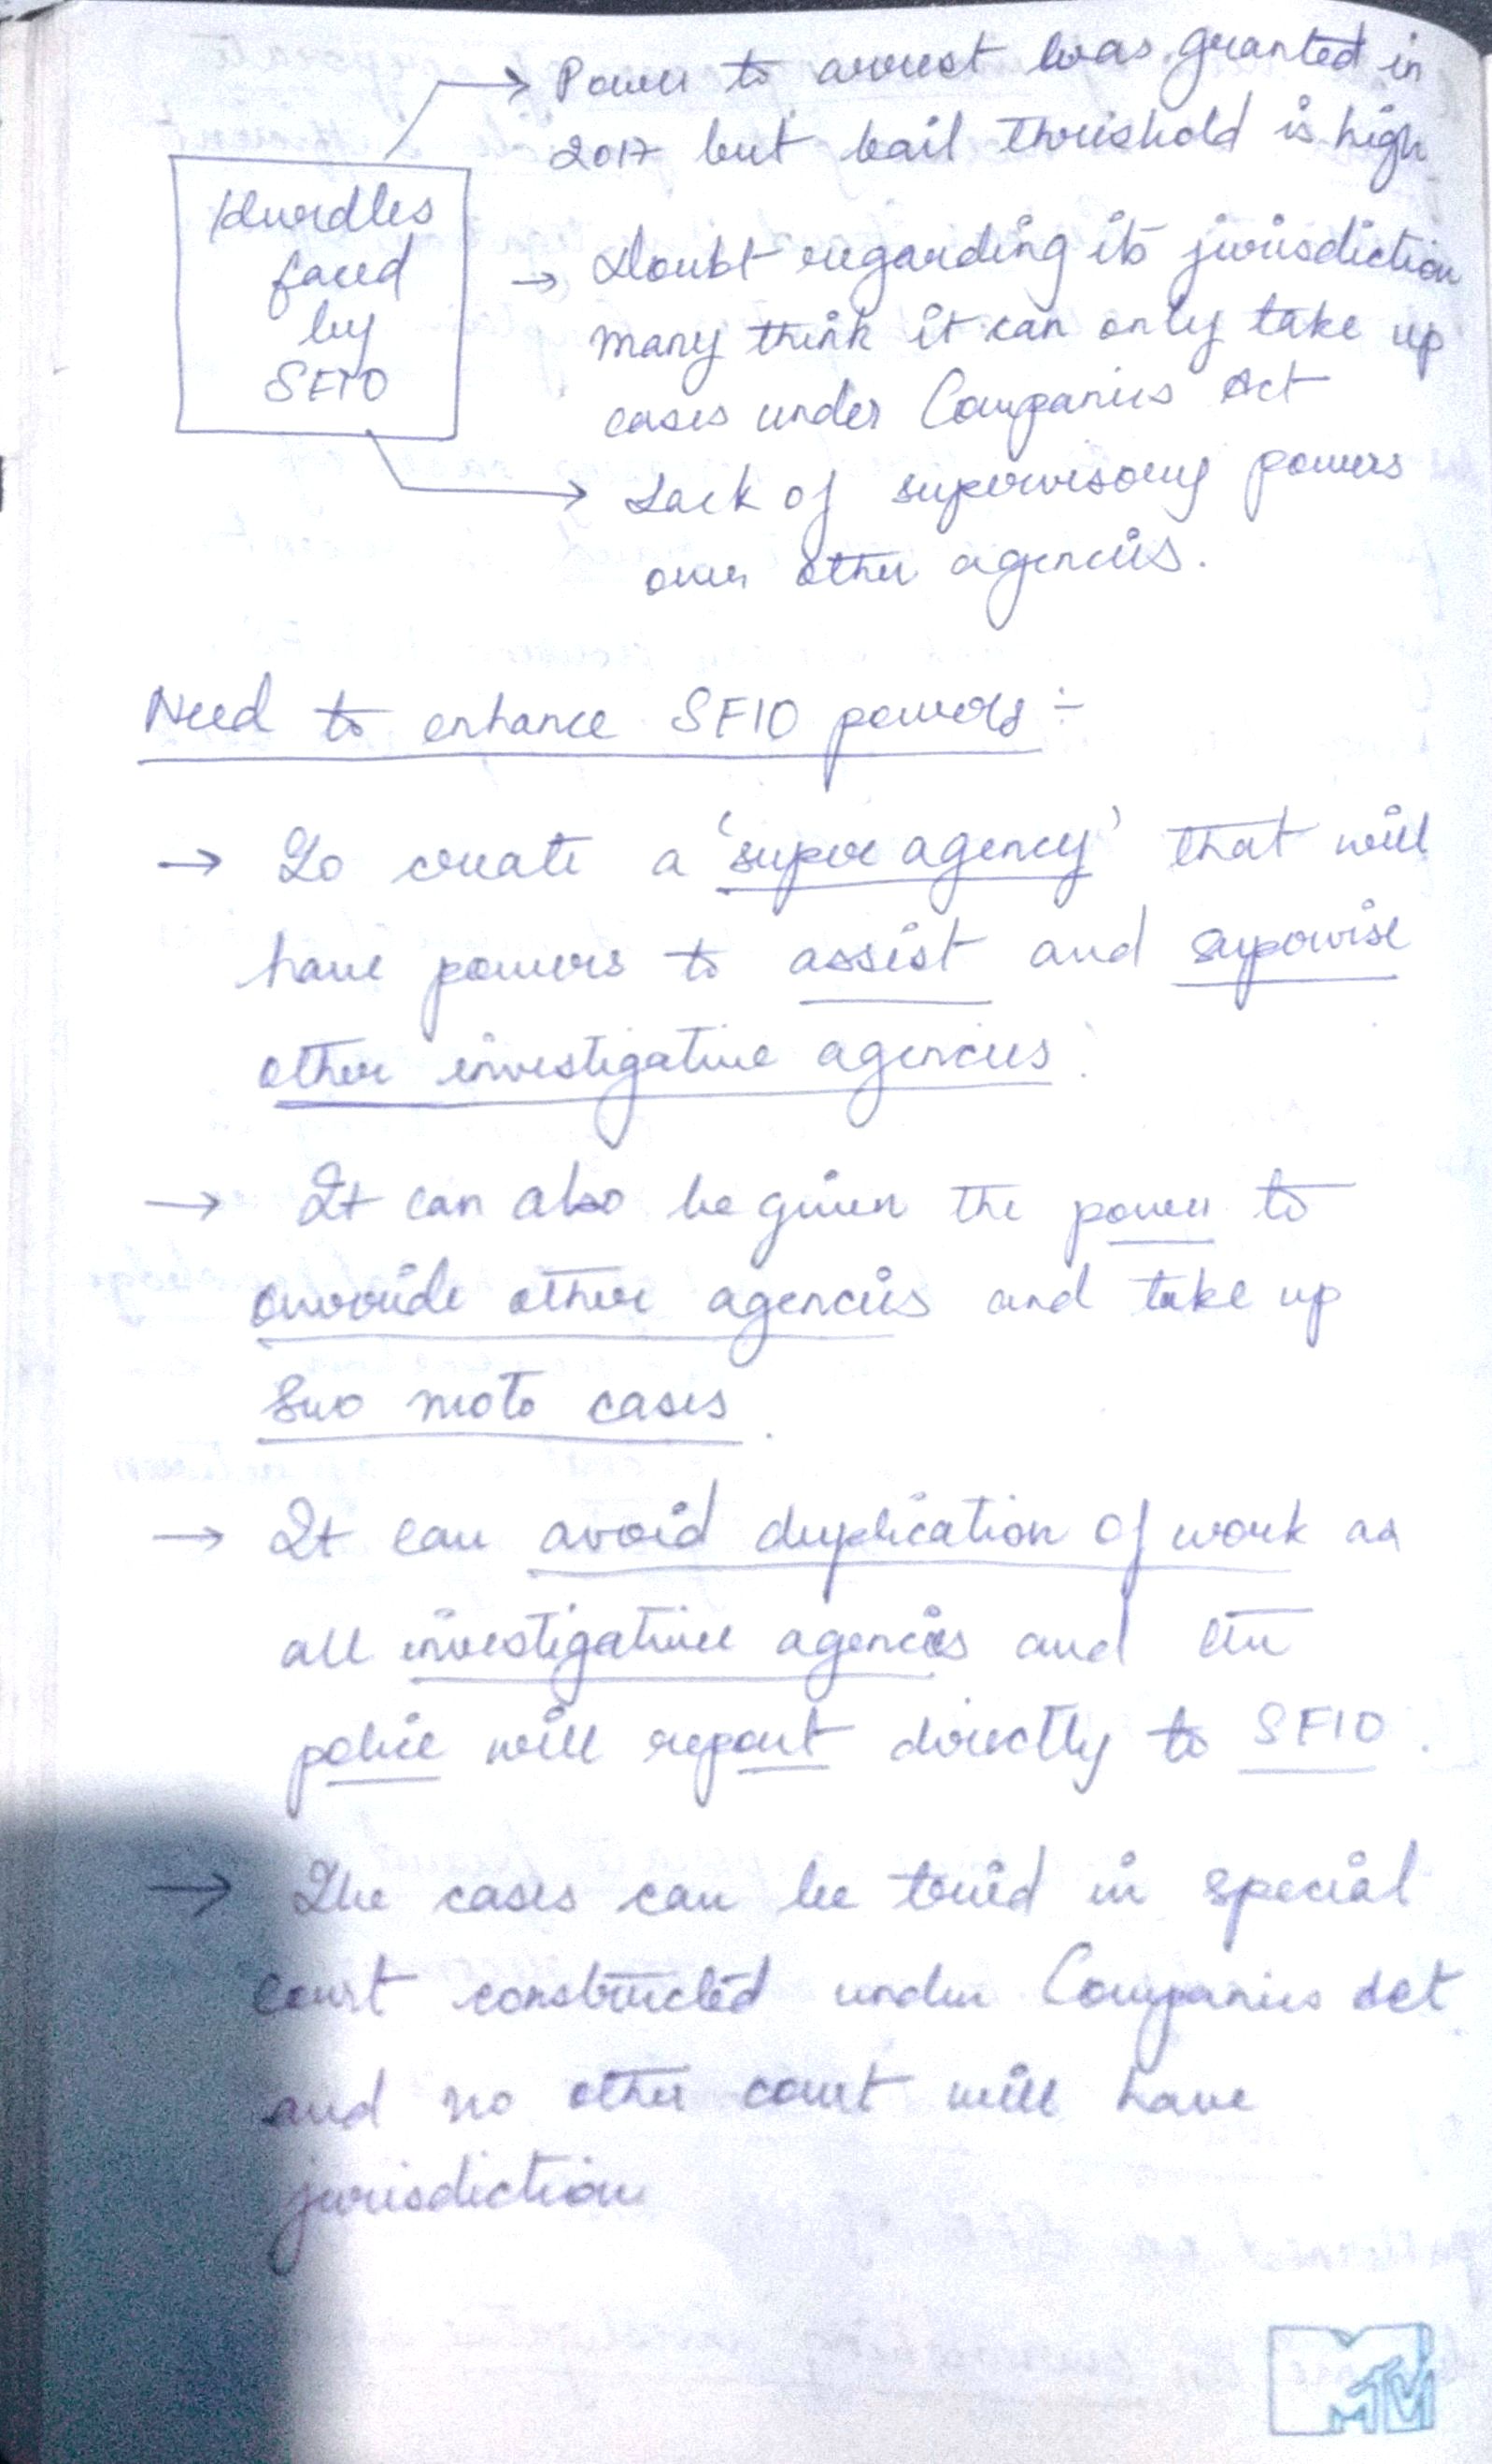 → Power to arrest was granted in
2017 but bail threshold is high
Hurdles
faced
by
SFIO
→ Doubt regarding its jurisdiction
many think it can only take up
cases under Companies Act
→ Lack of supervisory powers
over other agencies.
Need to enhance SFIO powers :-
→ To create a 'super agency' that will
have powers to assist and supervise
other investigative agencies.
→ It can also be given the power to
override other agencies and take up
Suo moto cases.
→ It can avoid duplication of work as
all investigative agencies and
police will report directly to SFIO.
→ The cases can be tried in special
court constructed under Companies Act
and no other court will have
jurisdiction
MTV